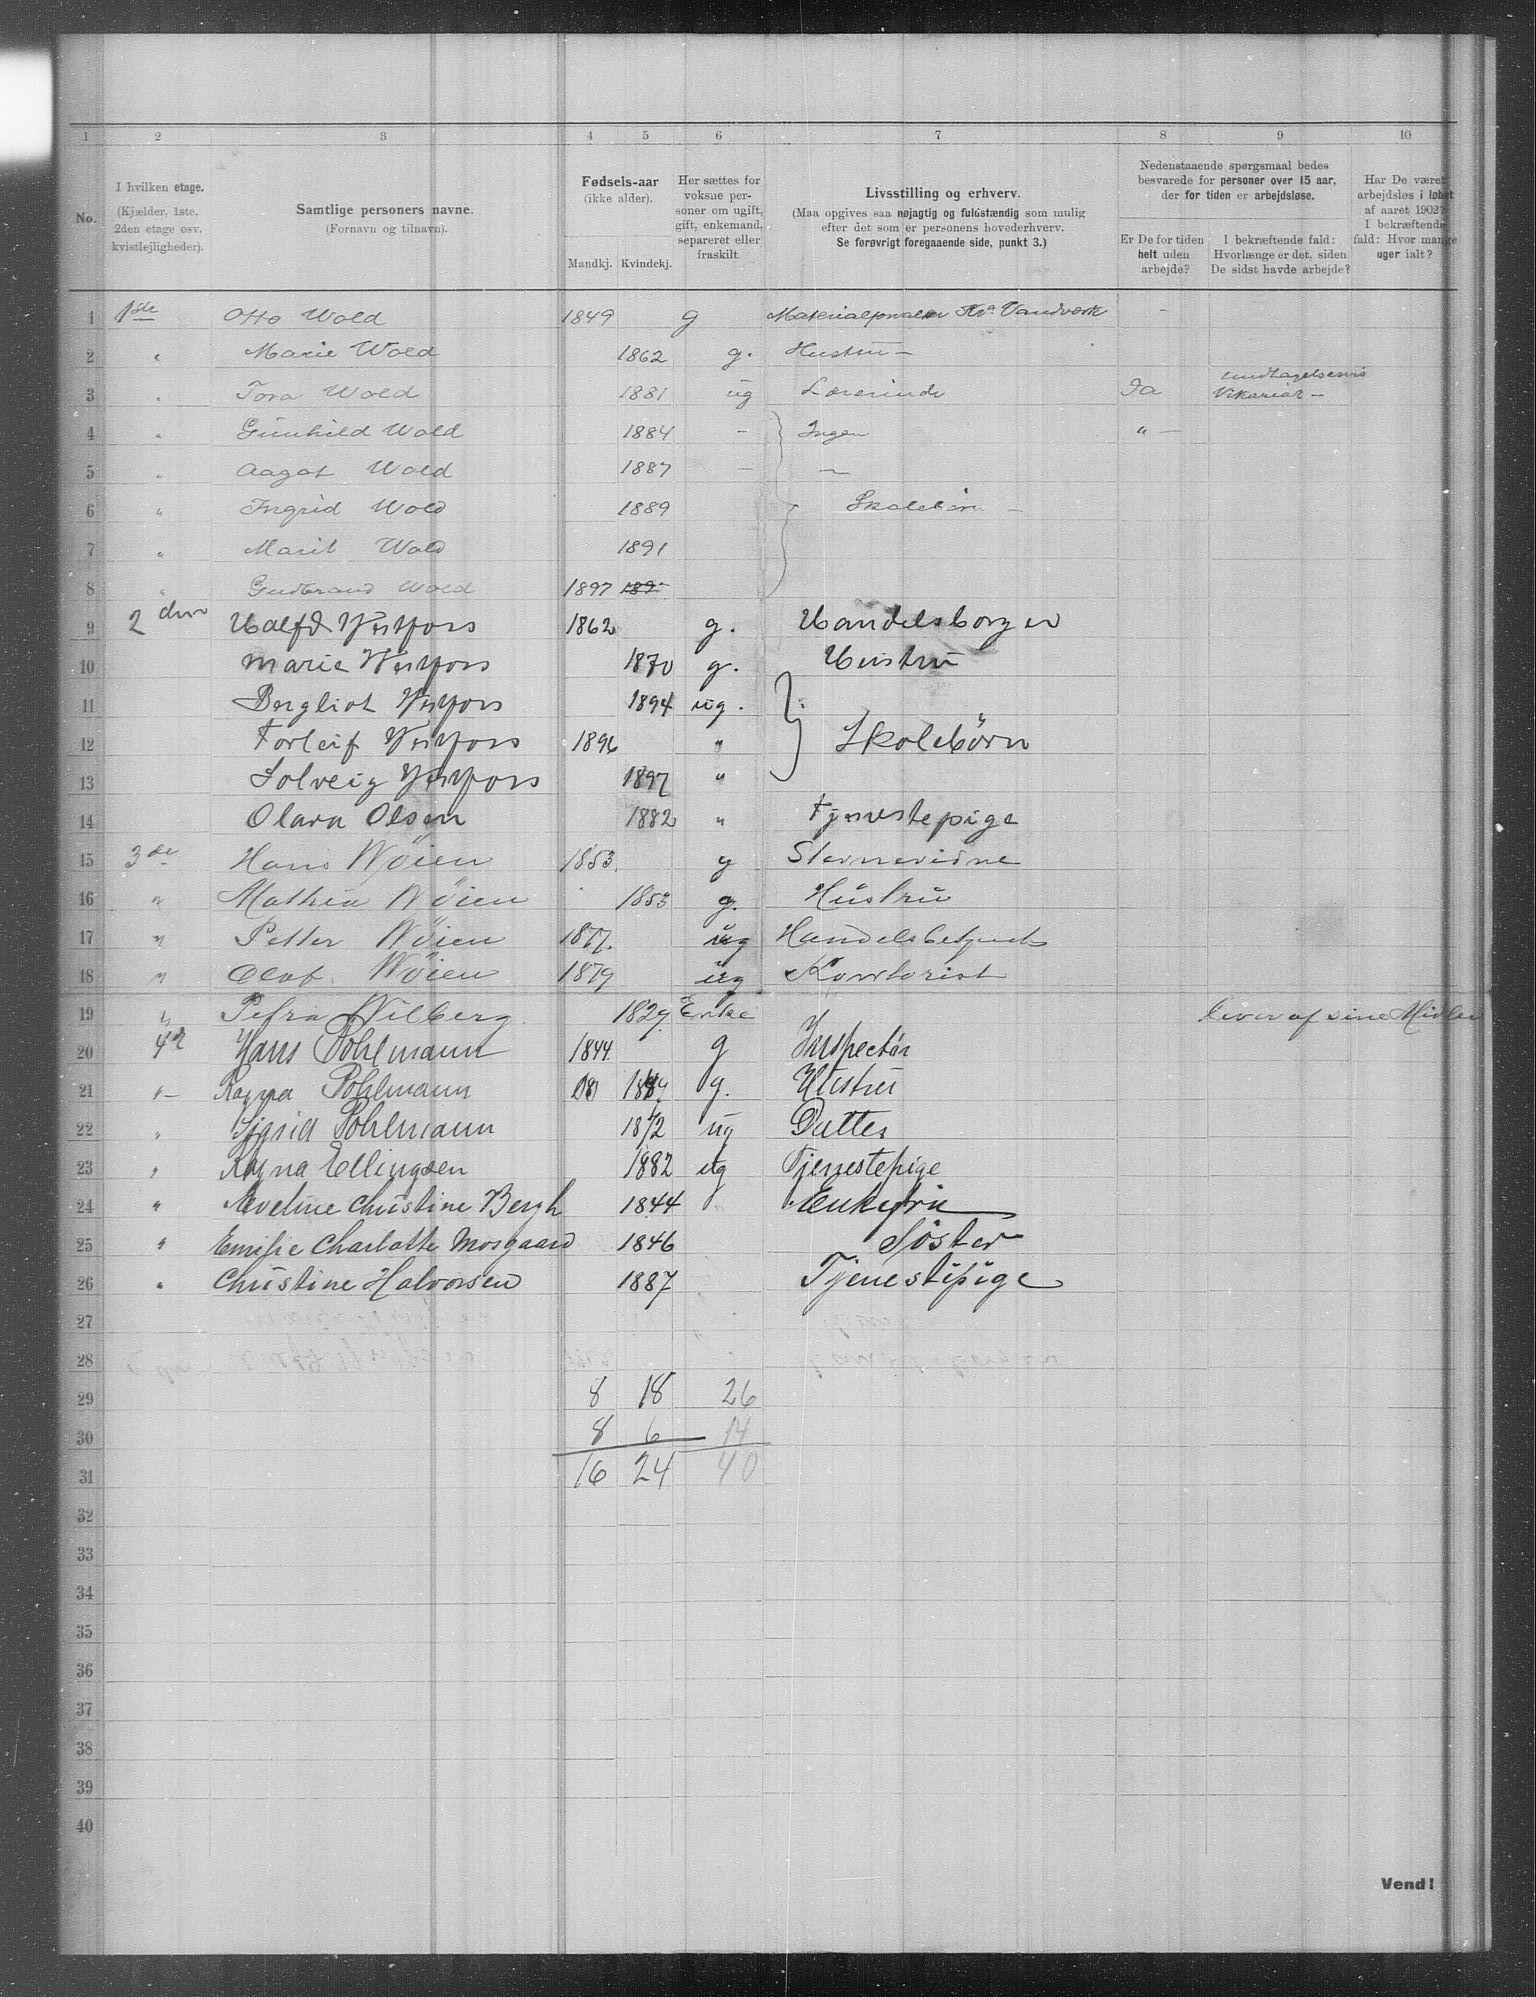 1 2 3 4 5 6 7 8 9 10
No.
I hvilken etage.
(Kjælder, 1ste,
2den etage osv.
kvistlejligheder).
Samtlige personers navne.
(Fornavn og tilnavn).
Fødsels-aar
(ikke alder).
Mandkj. Kvindekj.
Her sættes for
voksne per-
soner om ugift,
gift, enkemand,
separeret eller
fraskilt.
Livsstilling og erhverv.
(Maa opgives saa nøjagtig og fuldstændig som mulig
efter det som er personens hovederhverv.
Se forøvrigt foregaaende side, punkt 3.)
Nedenstaaende spørgsmaal bedes
besvarede for personer over 15 aar,
der for tiden er arbejdsløse.
Er De for tiden
helt uden
arbejde?
I bekræftende fald:
Hvorlænge er det, siden
De sidst havde arbejde?
Har De været
arbejdsløs i løbet
af aaret 1902?
I bekræftende
fald: Hvor mange
uger ialt?
1 1ste Otto Wold 1849 g Kra Vandværk -
2 " Marie Wold 1862 g. Hustru -
3 " Tora Wold 1881 ug Lærerinde Ja undtagelsesvis
Vikariat -
4 " Gunhild Wold 1884 - Ingen " -
5 " Aagot Wold 1887 - -
6 " Ingrid Wold 1889 Skolebørn -
7 " Marit Wold 1891
8 " Gudbrand Wold 1897 189
9 2den 1862 g. Handelsborger
10 Marie 1870 g. Hustru
11 Bergliot 1894 ug.
12 Torleif 1896 " Skolebørn
13 Solveig 1897 "
14 Olava Olsen 1882 " Tjenestepige
15 3de Hans Wøien 1853. g Stevnevidne
16 " Mathea Wøien 1853 g. Hustru
17 " Petter Wøien 1877. ug Handelsbetjent
18 " Olaf Wøien 1879 ug Kontorist
19 " Petra Wilberg 1829 Enke Lever af sine Midler
20 4de Hans Pohlmann 1844 g Inspectør
21 " - Ragna Pohlmann g. Hustru
22 " Sigrid Pohlmann 1872 ug Datter
23 " Ragna Ellingsen 1882 ug Tjenestepige
24 " Aveline Christine Bergh 1844 " Enkefru
25 " Emilie Charlotte Mosgaard 1846 Søster
26 " Christine Halvorsen 1887 Tjenestepige
27
28
29 8 18 26
30 8 6 14
31 16 24 40
32
33
34
35
36
37
38
39
40
Vend!